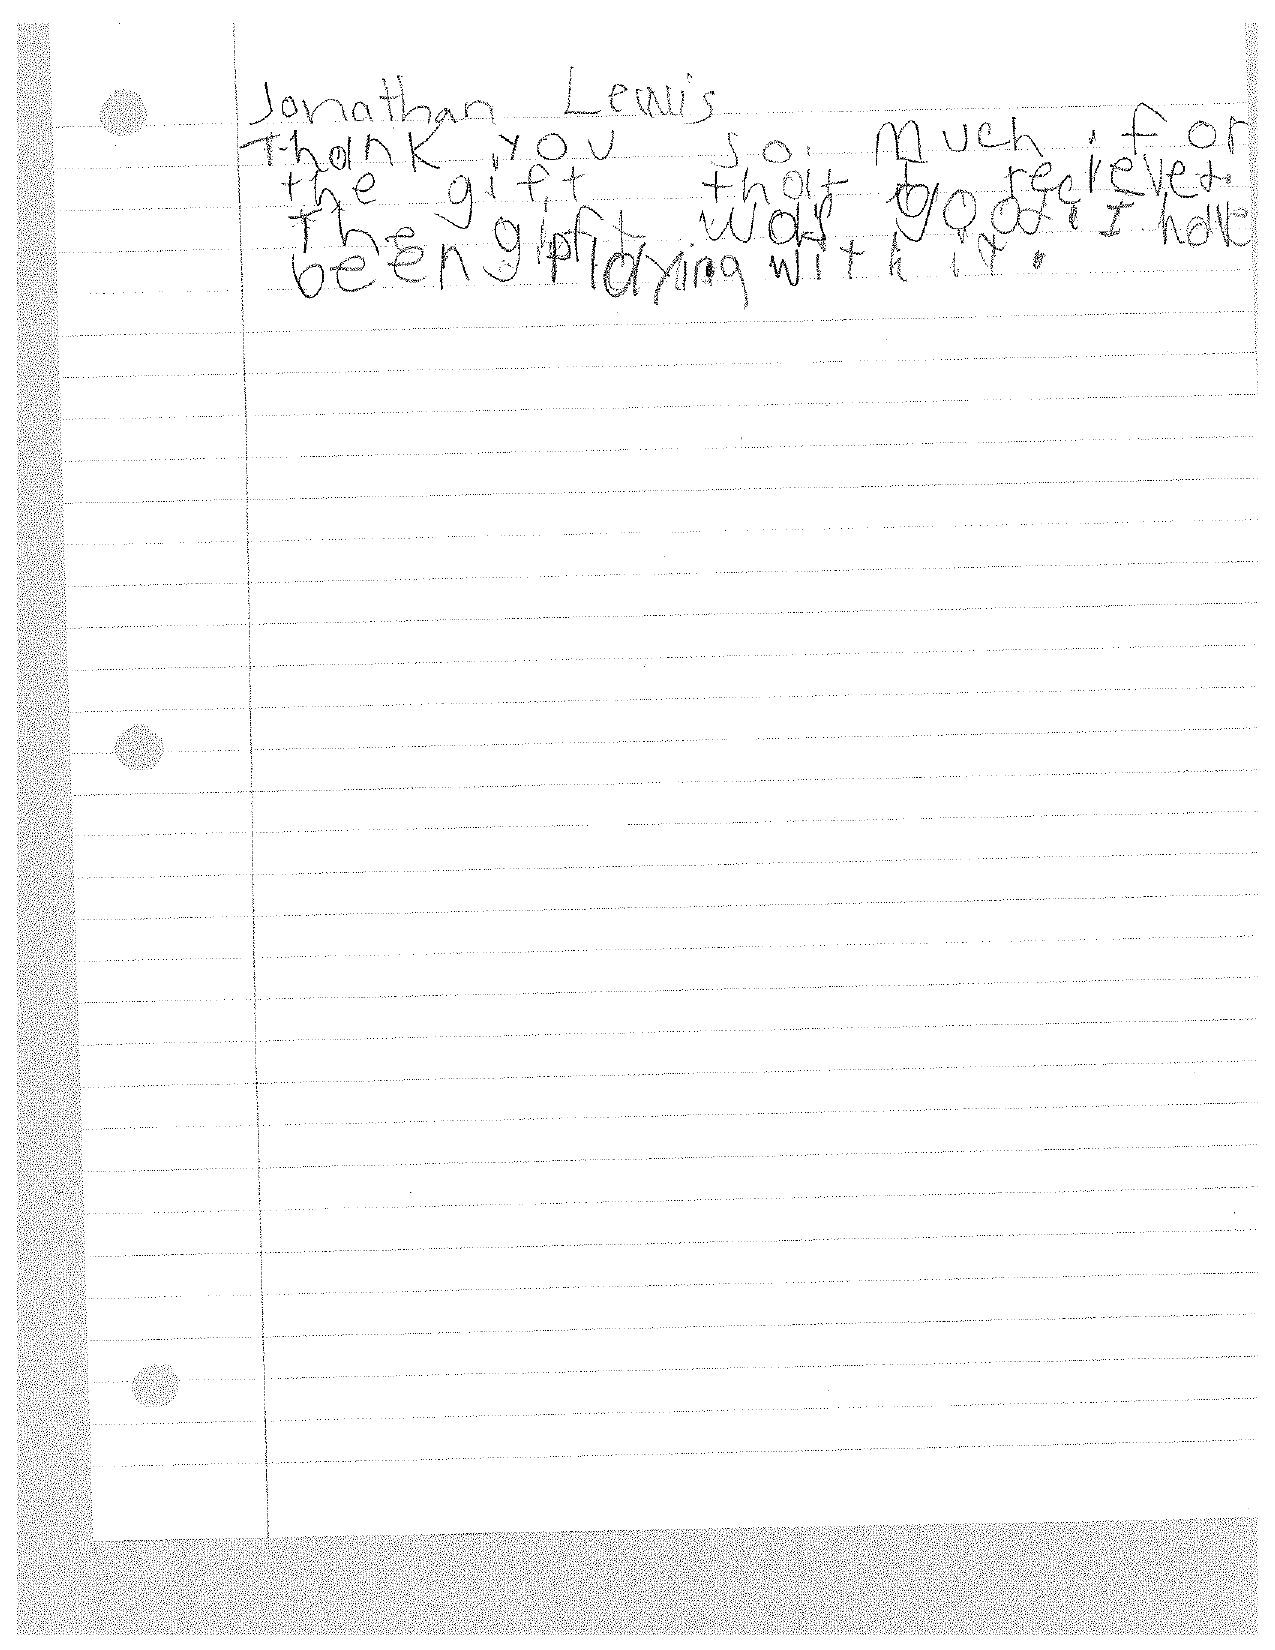 Jonathan Lewis
Thank you so much for
the gift that I recieved.
The gift was good. I have
been playing with it.